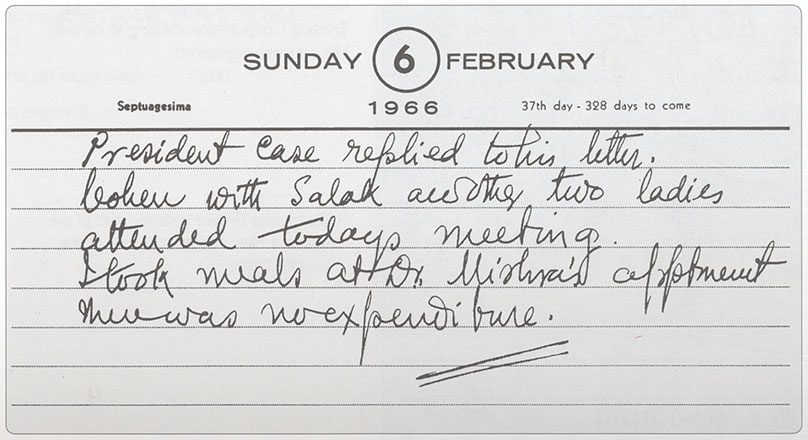 SUNDAY 6 FEBRUARY
Septuagesima 1966 37th day - 328 days to come
President Case replied to his letter.
Cohen with Salak another two ladies
attended todays meeting.
I took meals at Dr. Mishra's appptment
There was no expenditure.